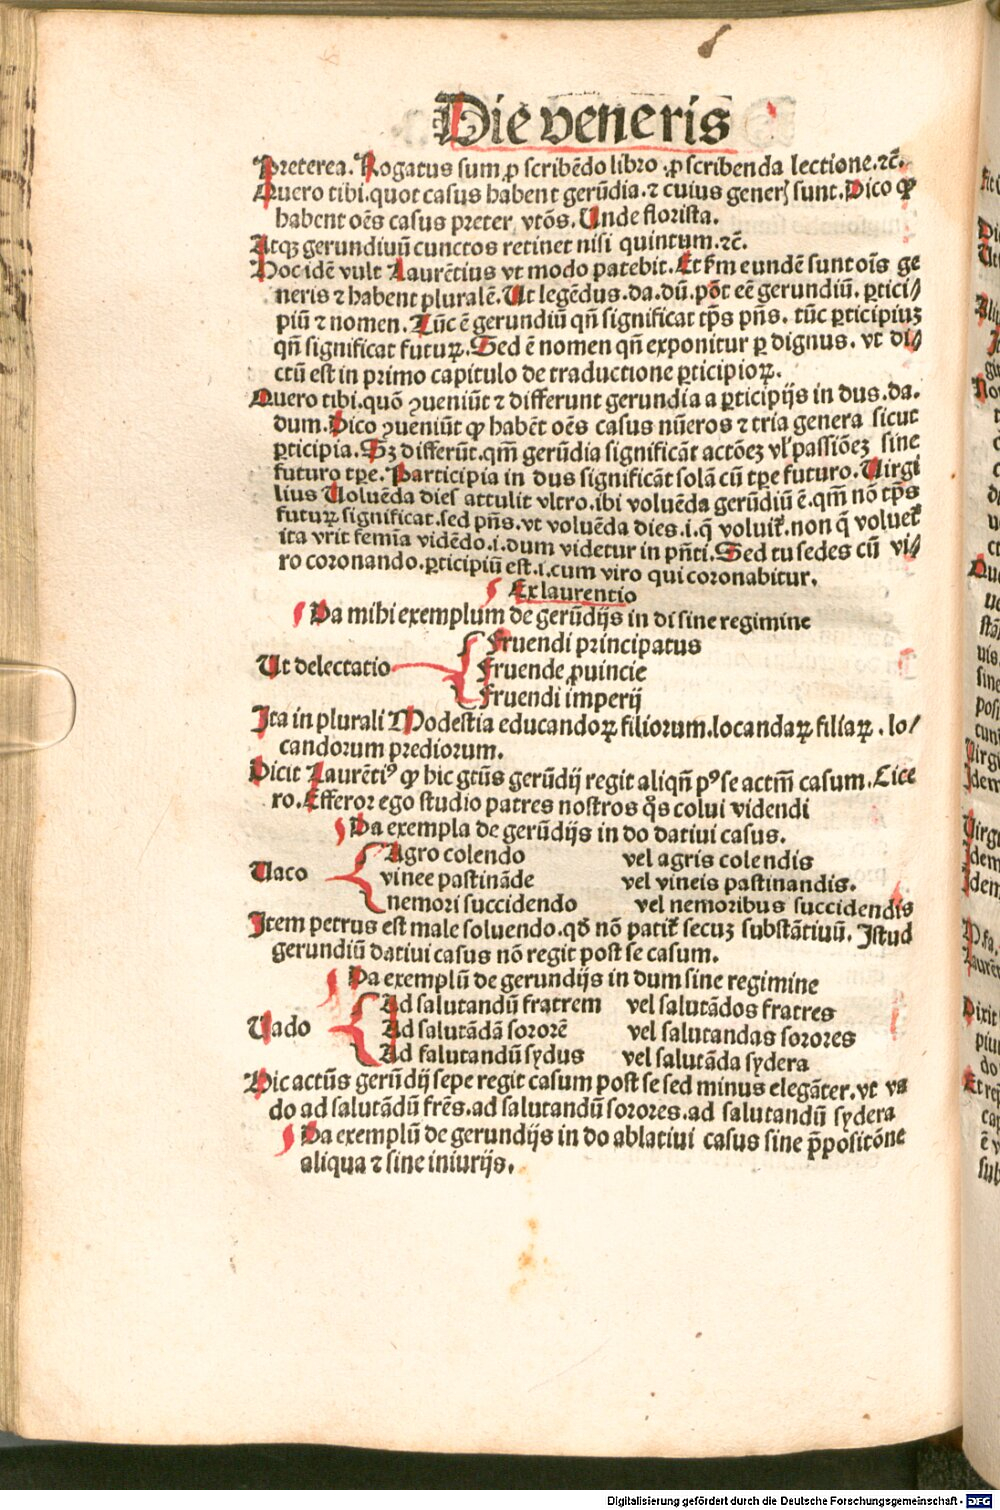 Die veneris
Preterea. Rogatus sum ꝓ scribēdo libro .ꝓ scribenda lectione.⁊c̄.
Quero tibi.quot casus habent gerūdia.⁊ cuius generꝭ sunt.Dico ꝙ
habent oēs casus preter vtōs. Unde florista.
Atqꝫ gerundiuū cunctos retinet nisi quintum.⁊c̄.
Hoc idē vult Laurētius vt modo patebit. Et ẜm eundē sunt oīs ge
neris ⁊ habent pluralē. Ut legēdus.da.dū. pōt eē gerundiū. ꝑtici⸗
piū ⁊ nomen. Tūc ē gerundiū qn̄ significat tp̄s pn̄s. tūc ꝑticipiuꝫ
qn̄ significat futuꝝ. Sed ē nomen qn̄ exponitur ꝑ dignus. vt di⸗
ctū est in primo capitulo de traductione ꝑticipioꝝ.
Quero tibi.quō ꝯueniūt ⁊ differunt gerundia a ꝑticipijs in dus.da.
dum. Dico ꝯueniūt ꝙ habēt oēs casus nūeros ⁊ tria genera sicut
ꝑticipia. Sꝫ differūt.qm̄ gerūdia significāt actōeꝫ vl̓ passiōeꝫ sine
futuro tꝑe. Participia in dus significāt solā cū tꝑe futuro. Uirgi
lius Uoluēda dies attulit vltro.ibi voluēda gerūdiū ē.qm̄ nō tp̄s
futuꝝ significat.sed pn̄s.vt voluēda dies.i.q̄ voluit᷑.non q̄ voluet᷑
ita vrit femīa vidēdo.i.dum videtur in pn̄ti. Sed tu sedes cū vi⸗
ro coronando.ꝑticipiū est.i.cum viro qui coronabitur.
Ex laurentio
Da mihi exemplum de gerūdijs in di sine regimine
Fruendi principatus
Ut delectatio Fruende ꝓuincie
Fruendi imperij
Ita in plurali Modestia educandoꝝ filiorum.locandaꝝ filiaꝝ . lo⸗
candorum prediorum.
Dicit Laurētiꝰ ꝙ hic gtūs gerūdij regit aliqn̄ pꝰ se actm̄ casum. Cice
ro. Efferor ego studio patres nostros q̄s colui videndi
Da exempla de gerūdijs in do datiui casus.
Agro colendo vel agris colendis
Uaco vinee pastināde vel vineis pastinandis.
nemori succidendo vel nemoribus succidendis
Item petrus est male soluendo.qd̄ nō patit᷑ secuꝫ substātiuū. Istud
gerundiū datiui casus nō regit post se casum.
Da exemplū de gerundijs in dum sine regimine
Ad salutandū fratrem vel salutādos fratres
Uado Ad salutādā sororē vel salutandas sorores
Ad salutandū sydus vel salutāda sydera
Hic actūs gerūdij sepe regit casum post se sed minus elegāter.vt va
do ad salutādū frēs.ad salutandū sorores.ad salutandū sydera
Da exemplū de gerundijs in do ablatiui casus sine p̄positōne
aliqua ⁊ sine iniurijs.
Digitalisierung gefördert durch die Deutsche Forschungsgemeinschaft - DFG